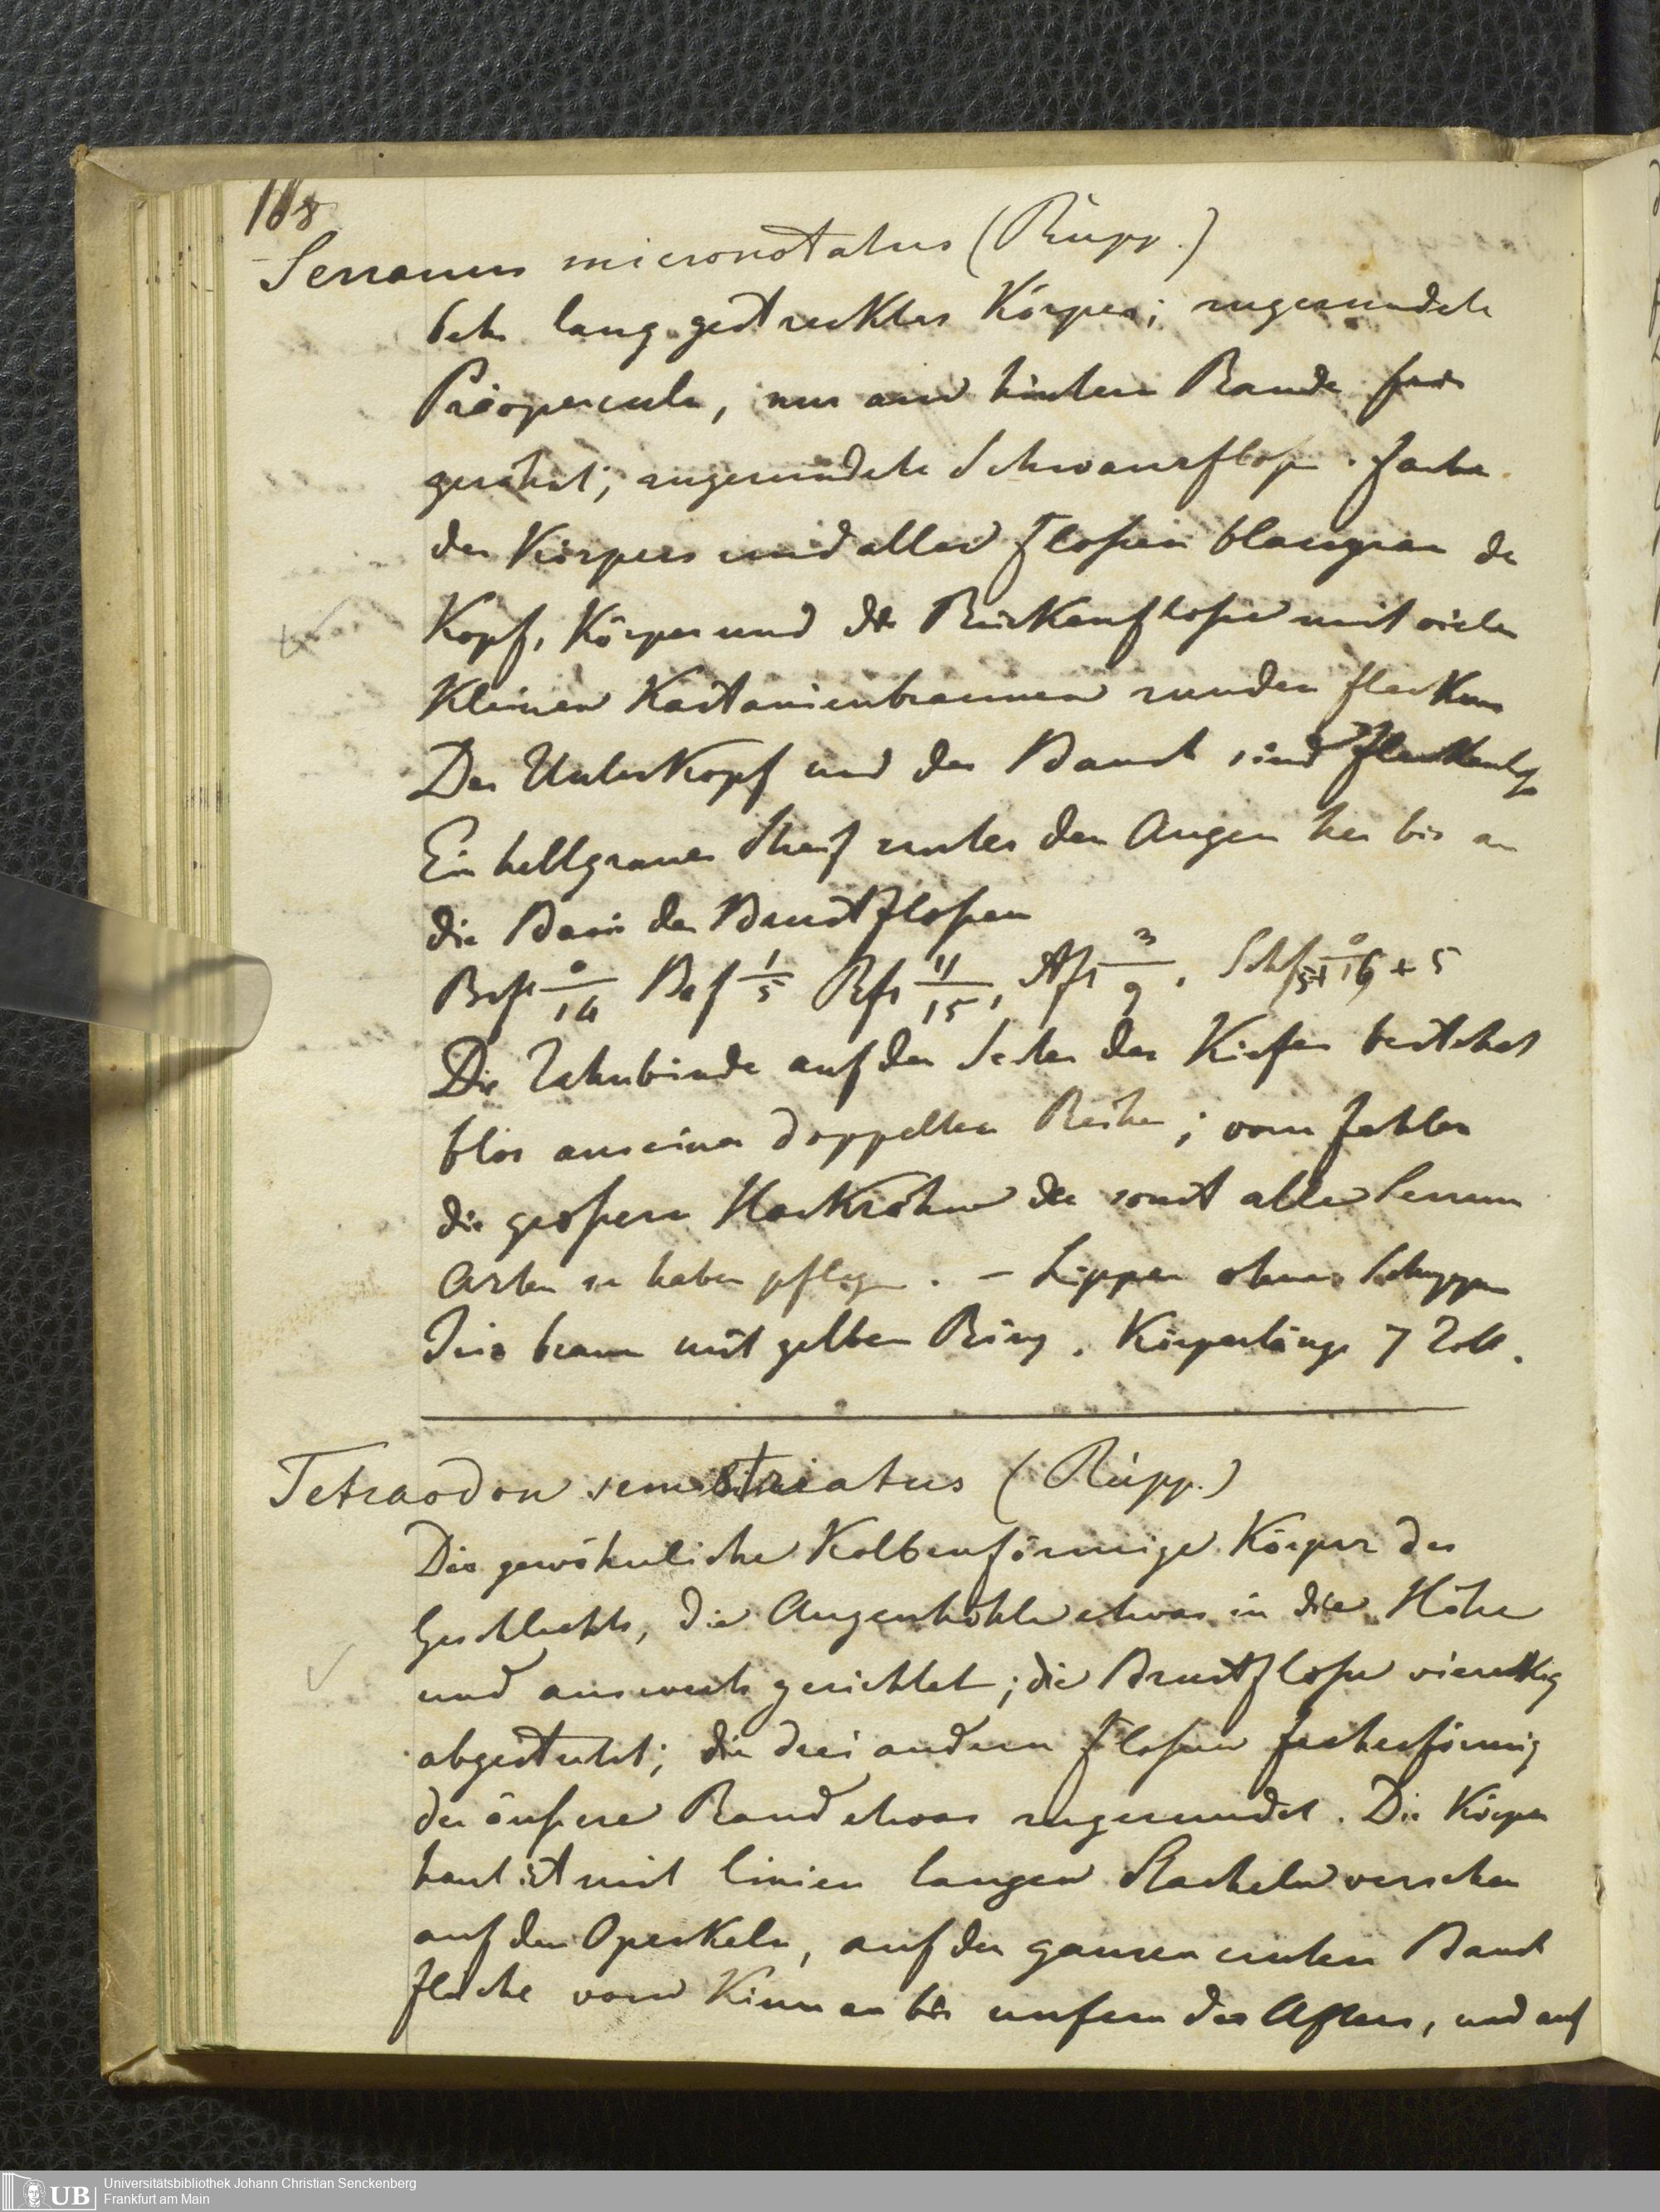 168
Serranus micronotatus (Rüpp.)
Sehr lang gestreckter Körper; zugerundete
Präopercula, nur am hintern Rande fein
gezähnt; zugerundete Schwanzfloße. Farbe
des Körpers und aller Floßen blaugrau der
Kopf, Körper und die Rückenfloße mit vielen
Kleinen Kastanienbraunen runden flecken
Der Unterkopf und der Bauch sind fleckenlos
Ein hellgrauer Streif unter den Augen her bis an
die Basis der Brustfloßen
Brfl 0/14 Bfl 1/5 Rfl 11/15, Afl 3/9, Schfl 0/5+16+5
Die Zahnbinde auf den Seiten der Kiefer bestehet
blos aus einer doppelten Reihe; vorn fehlen
die großern Hackzähne die sonst alle Serran
Arten zu haben pflegen. – Lippen ohne Schuppen
Iris braun mit gelben Ring. Körperlänge 7 Zoll.
Tetraodon semistriatus (Rüpp.)
Der gewöhnliche Kolbenförmige Körper des
Geschlechts, die Augenhöhle etwas in die Höhe
und auswerts gerichtet; die Brustfloße viereckig
abgestutzt; die drei andern Floßen fecherförmig
der äußere Rand etwas zugerundet. Die Körper
haut ist mit linien langen Stacheln versehen
auf den Operkeln, auf der ganzen untern Bauch
flache vom Kinn an bis unfern des Afters, und auf
Universitätsbibliothek Johann Christian Senckenberg
UB Frankfurt am Main